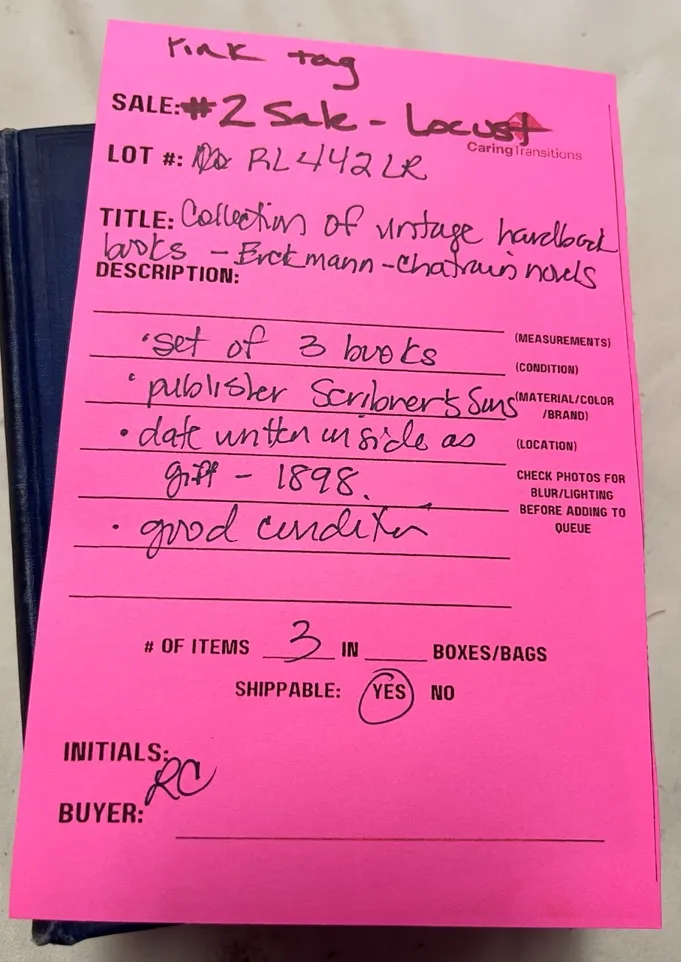 Pink tag
SALE: #2 Sale - Locust
CaringTransitions
LOT #: RL442LR
TITLE: Collection of vintage hardback
books - Erckmann-Chatrain novels
DESCRIPTION:
(MEASUREMENTS)
• set of 3 books
(CONDITION)
• publisher Scribner's Sons
(MATERIAL/COLOR
/BRAND)
• date written inside as
(LOCATION)
gift - 1898.
CHECK PHOTOS FOR
BLUR/LIGHTING
BEFORE ADDING TO
QUEUE
• good condition
# OF ITEMS 3 IN BOXES/BAGS
SHIPPABLE: YES NO
INITIALS: RC
BUYER: